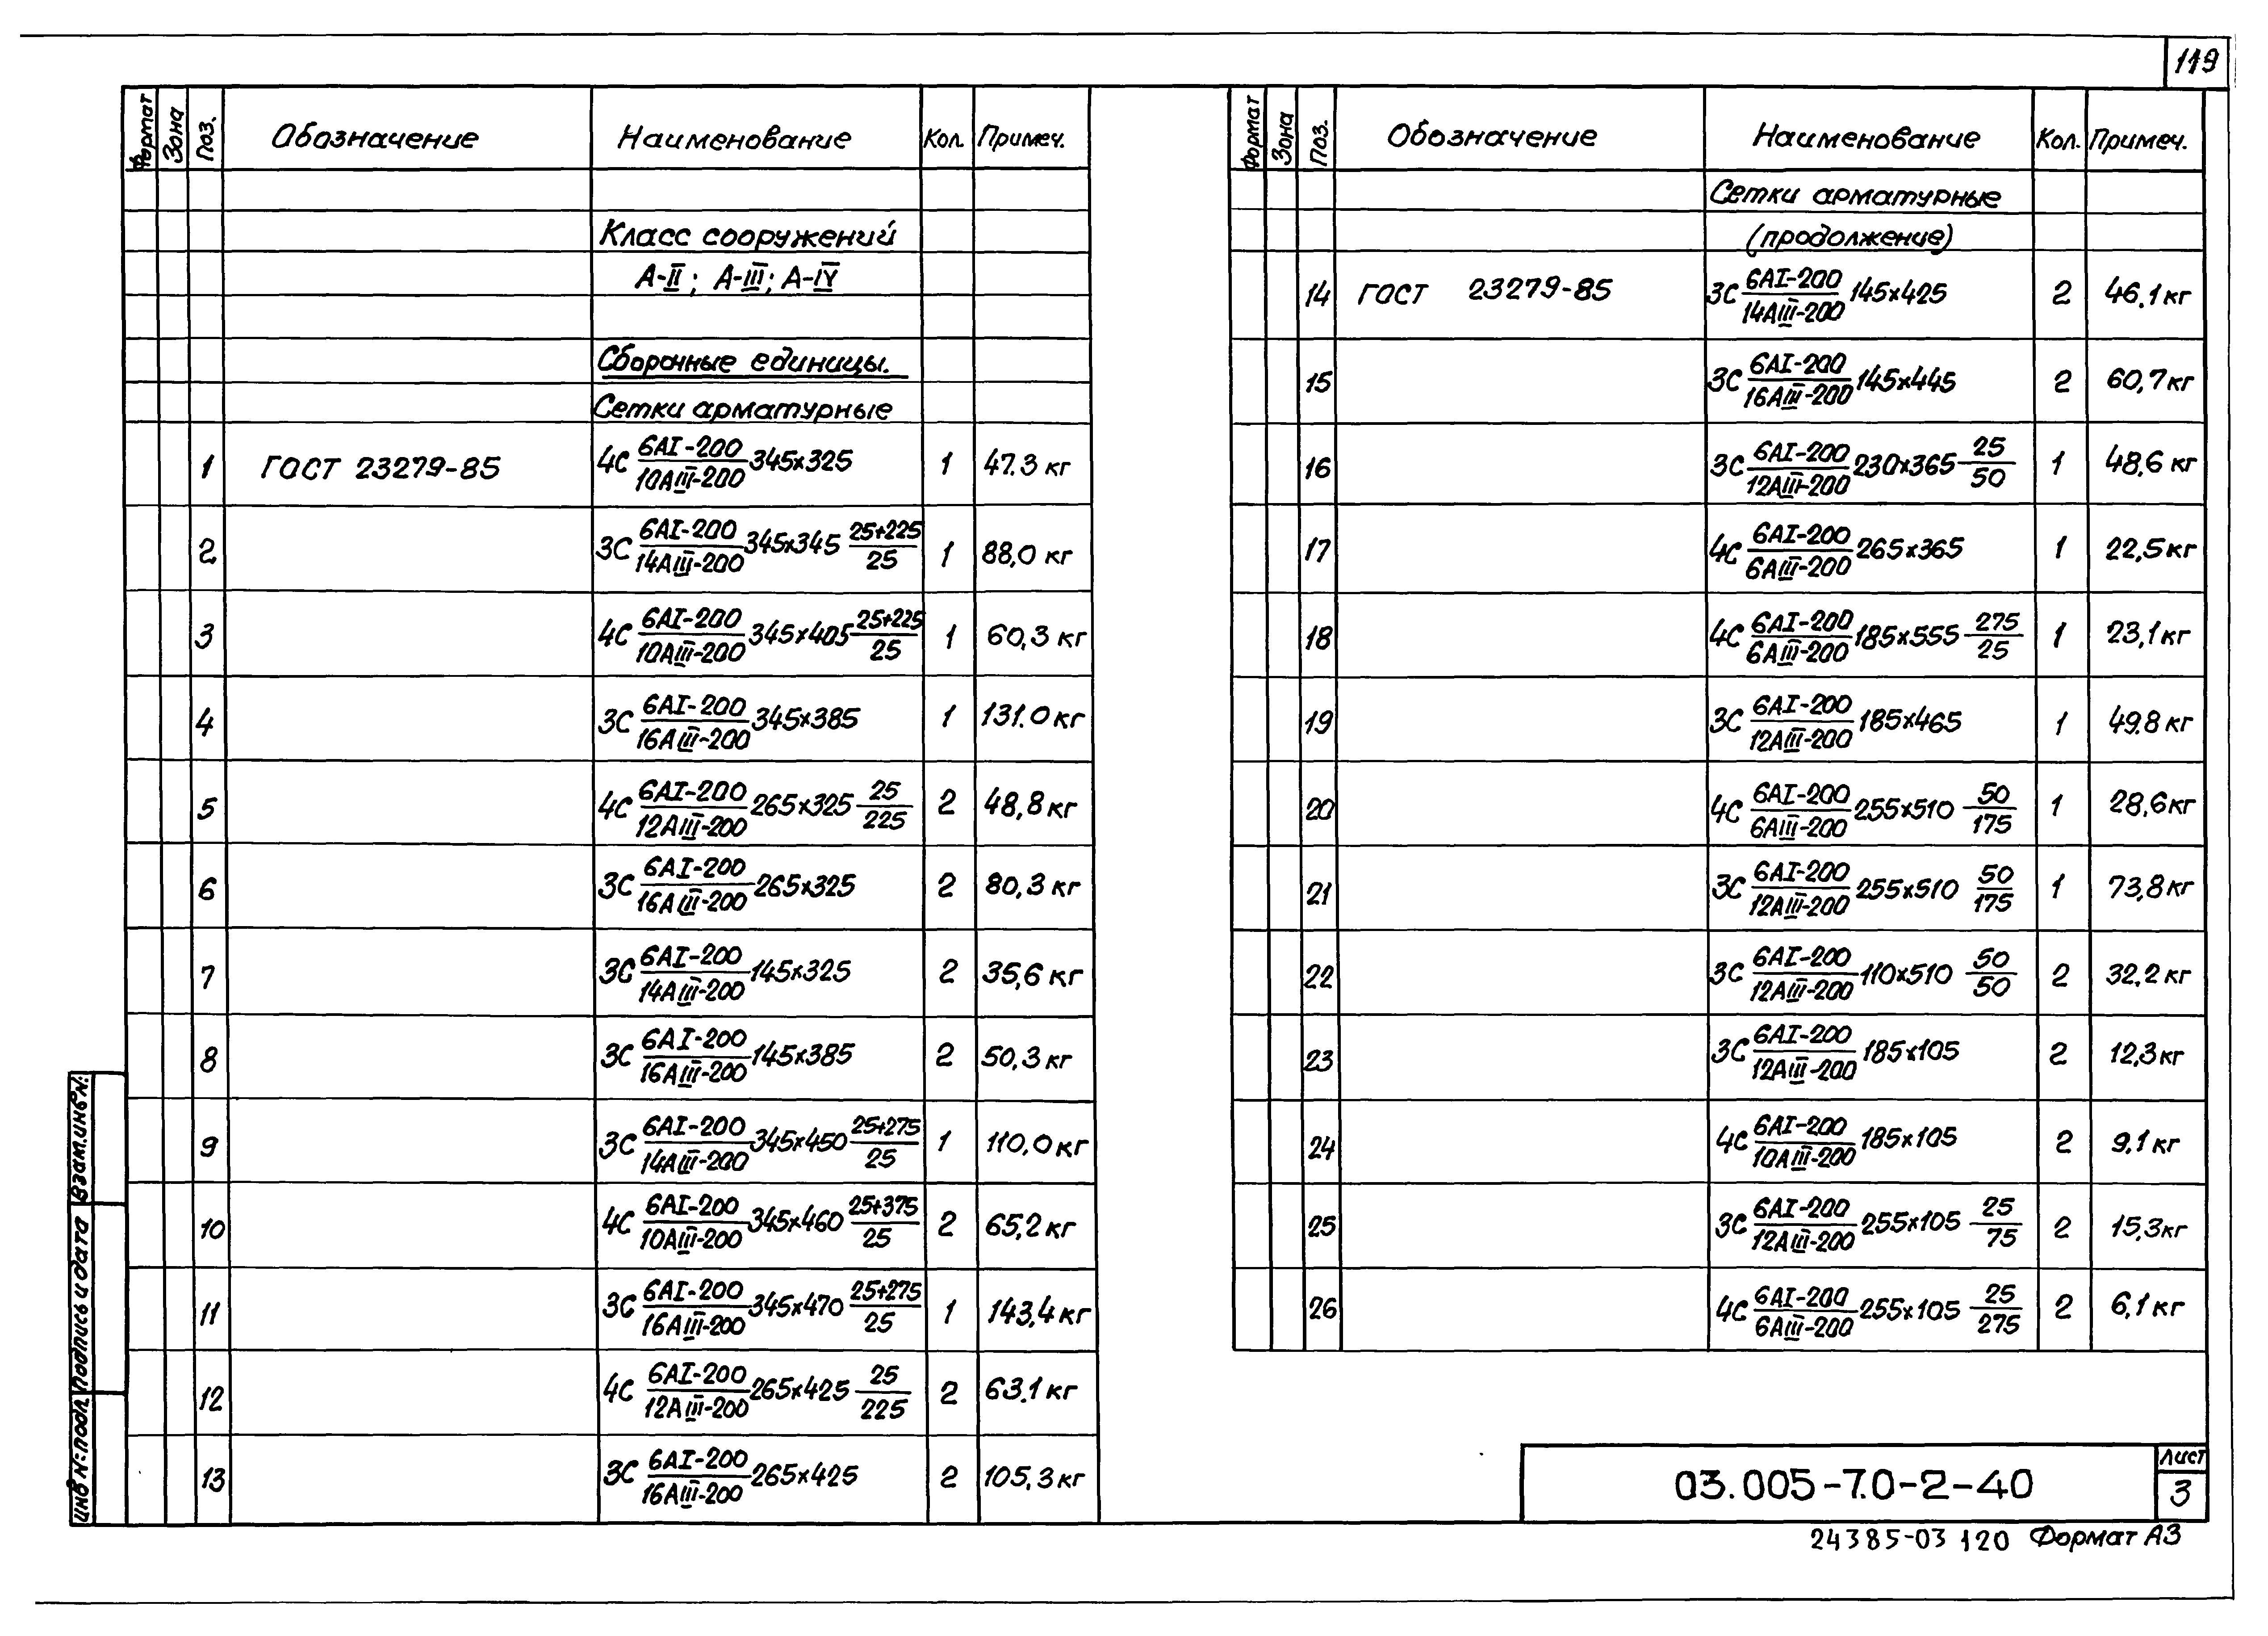 119
Формат Зона Поз. Обозначение Наименование Кол. Примеч.
Класс сооружений
А-II; А-III; А-IV
Сборочные единицы.
Сетки арматурные
1 ГОСТ 23279-85 4С 6АI-200/10АIII-200 345х325 1 47.3 кг
2 3С 6АI-200/14АIII-200 345х345 25+225/25 1 88,0 кг
3 4С 6АI-200/10АIII-200 345х405 25+225/25 1 60,3 кг
4 3С 6АI-200/16АIII-200 345х385 1 131.0 кг
5 4С 6АI-200/12АIII-200 265х325 25/225 2 48,8 кг
6 3С 6АI-200/16АIII-200 265х325 2 80,3 кг
7 3С 6АI-200/14АIII-200 145х325 2 35,6 кг
8 3С 6АI-200/16АIII-200 145х385 2 50,3 кг
9 3С 6АI-200/14АIII-200 345х450 25+275/25 1 110,0 кг
10 4С 6АI-200/10АIII-200 345х460 25+375/25 2 65,2 кг
11 3С 6АI-200/16АIII-200 345х470 25+275/25 1 143,4 кг
12 4С 6АI-200/12АIII-200 265х425 25/225 2 63.1 кг
13 3С 6АI-200/16АIII-200 265х425 2 105,3 кг
Формат Зона Поз. Обозначение Наименование Кол. Примеч.
Сетки арматурные
(продолжение)
14 ГОСТ 23279-85 3С 6АI-200/14АIII-200 145х425 2 46.1 кг
15 3С 6АI-200/16АIII-200 145х445 2 60,7 кг
16 3С 6АI-200/12АIII-200 230х365 25/50 1 48,6 кг
17 4С 6АI-200/6АIII-200 265х365 1 22,5 кг
18 4С 6АI-200/6АIII-200 185х555 275/25 1 23,1 кг
19 3С 6АI-200/12АIII-200 185х465 1 49.8 кг
20 4С 6АI-200/6АIII-200 255х510 50/175 1 28,6 кг
21 3С 6АI-200/12АIII-200 255х510 50/175 1 73,8 кг
22 3С 6АI-200/12АIII-200 110х510 50/50 2 32.2 кг
23 3С 6АI-200/12АIII-200 185х105 2 12,3 кг
24 4С 6АI-200/10АIII-200 185х105 2 9,1 кг
25 3С 6АI-200/12АIII-200 255х105 25/75 2 15,3 кг
26 4С 6АI-200/6АIII-200 255х105 25/275 2 6,1 кг
Взам.инв N:
Подпись и дата
Инв N: подл.
03.005-7.0-2-40
Лист
3
24385-03 120 Формат А3